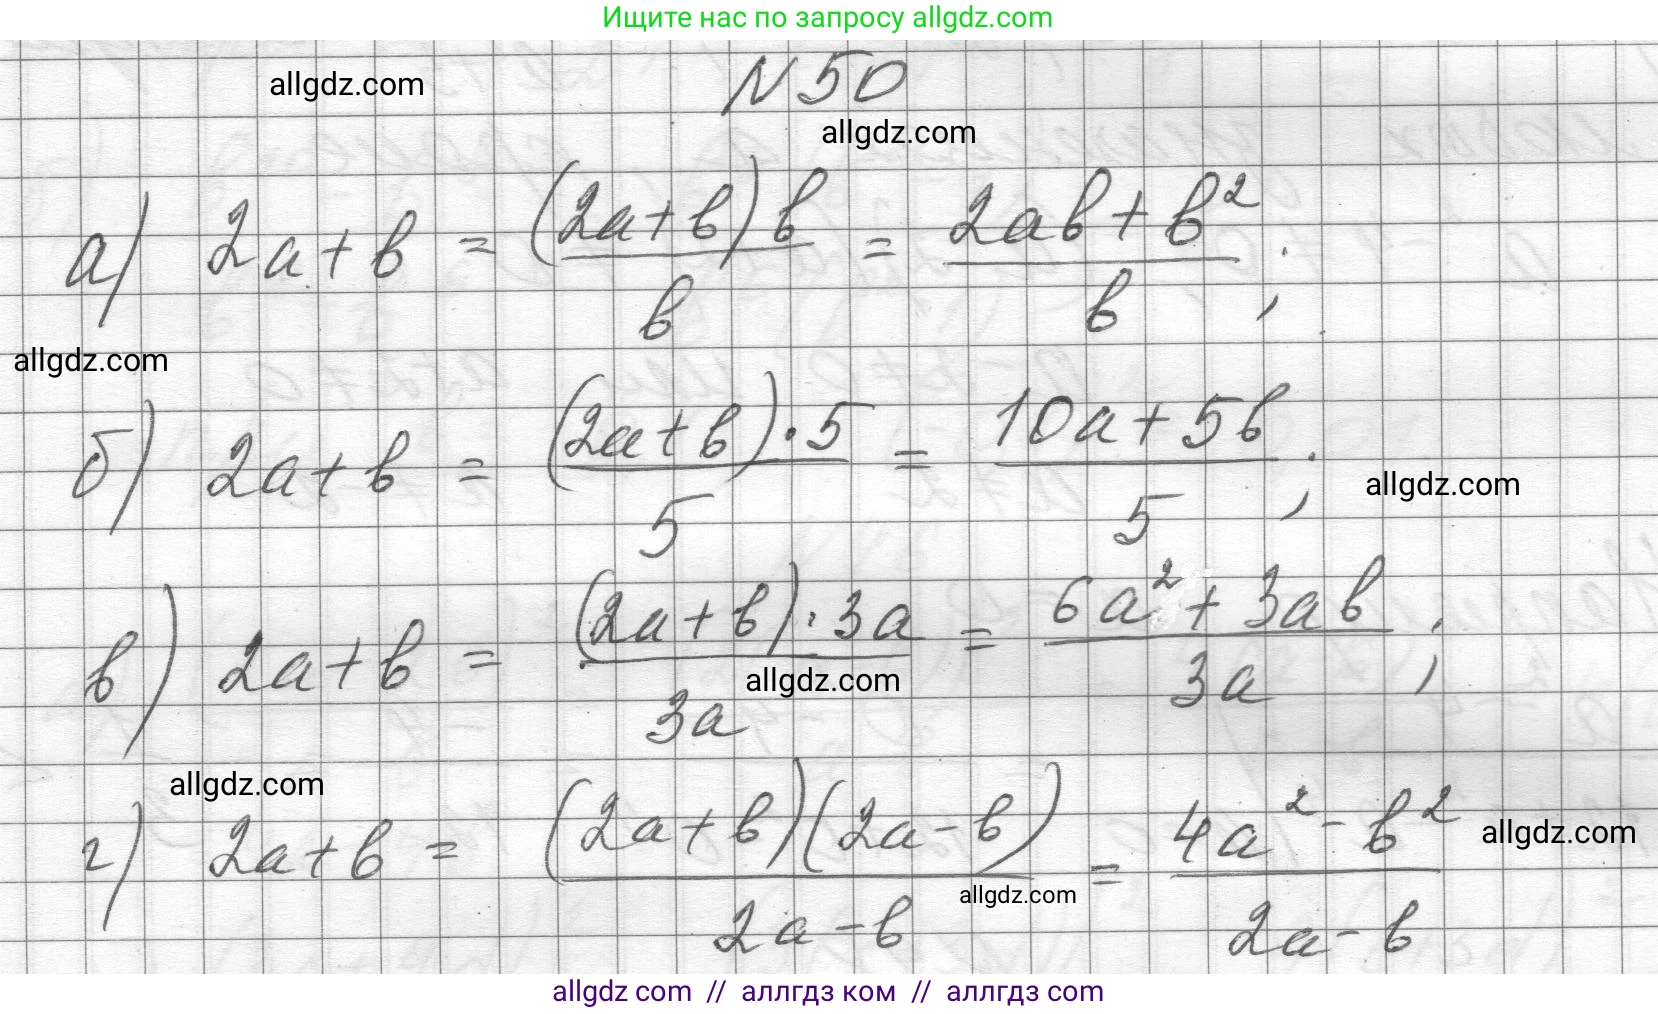 Ищите нас по запросу allgdz.com
allgdz.com
N 50
allgdz.com
а) 2a+b = (2a+b)b/b = 2ab+b²/b ;
allgdz.com
б) 2a+b = (2a+b)·5/5 = 10a+5b/5 ;
allgdz.com
в) 2a+b = (2a+b)·3a/3a = 6a²+3ab/3a ;
allgdz.com
allgdz.com
г) 2a+b = (2a+b)(2a-b)/2a-b = 4a²-b²/2a-b
allgdz.com
allgdz.com
allgdz com // аллгдз ком // allgdz.com